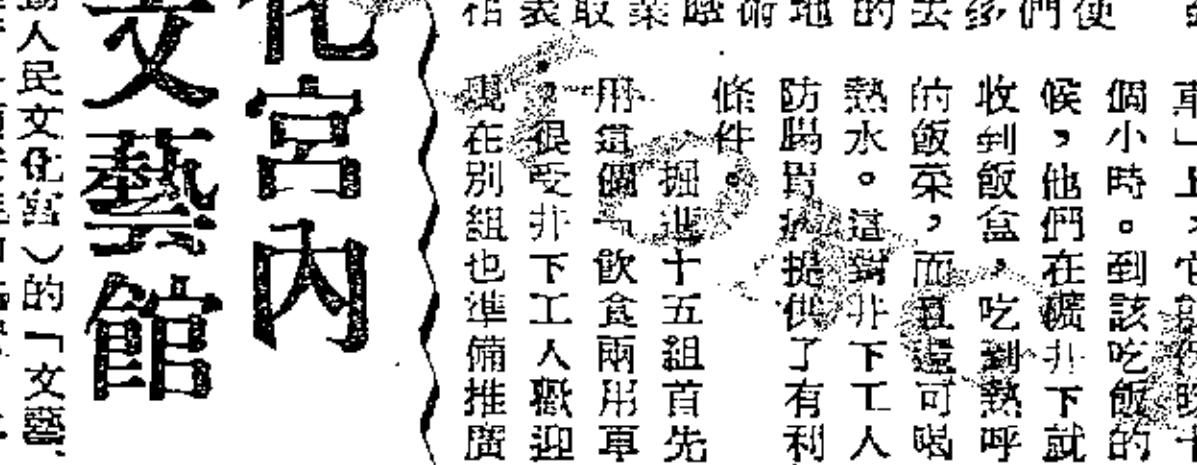 車」上，它
個小時。到該吃飯的
候，他們在礦井下就
收到飯盒，吃到熱呼
的飯菜，而且還可喝
熱水。這對井下工人
防腸胃病提供了有利
條件。
掘進十五組首先
用這個「飲食兩用車
，很受井下工人歡迎
現在別組也準備推廣
化宮內
文藝館
動人民文化宮）的「文藝